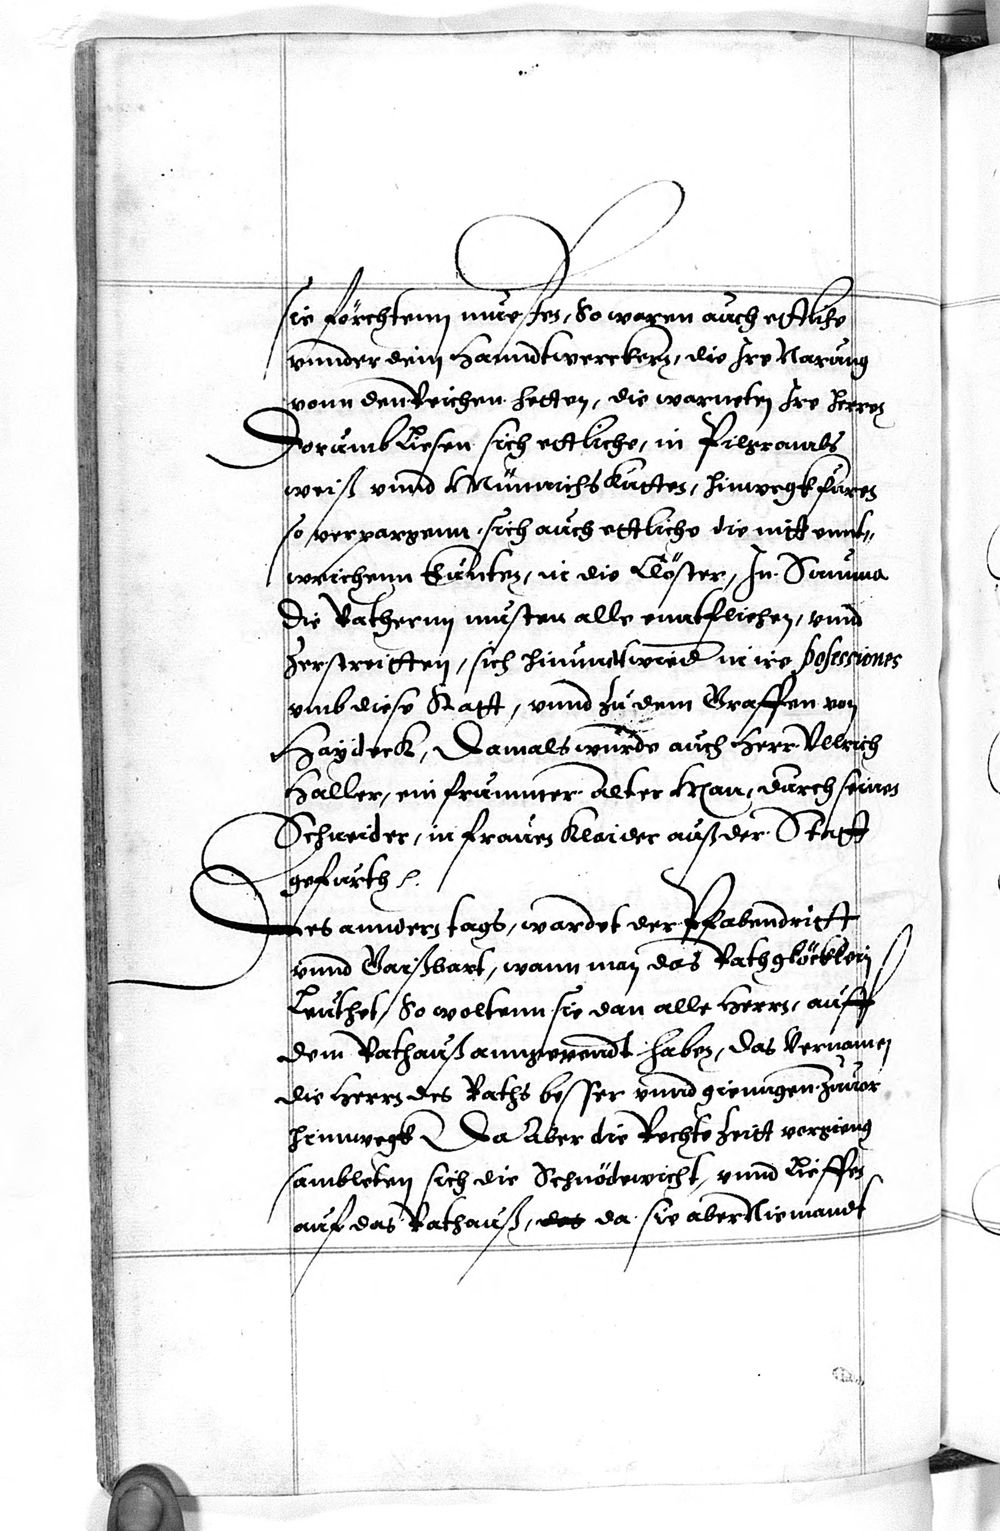 sie förchtenn muesten, So waren auch ettliche
vnnder dem Hanndtwerckern, die Ire Narung
vonn den Reichen hetten, die warneten Ire Herren
Darumb Liesen sich ettliche, in Pilgrambs
weiß vnnd Münnichs Kutten, hinwegk füren
so verpargenn sich auch ettliche die nittennt„
weichenn kunten, in die Clöster, In Summa
die Rathernn musten alle enntfliehen, vnnd
zerstreitten, sich hinundtwied in ire possessiones
vmb diese Statt, vnnd zu dem Graffen von
Haydeck, Damals wurde auch Herr Vllrich
Haller, ein frummer alter Man, durch seinen
Schneider, in frauen Kleider auß der Statt
gefürth
Des anndern tags, wardet der Pfabendritt
vnnd Gaißbart, wann man das Rathglöcklein
Leuthet, So woltenn sie dan alle Herrn, auff
dem Rathauß anngewendt haben, das vernamen
die Herrn des Raths besser vnnd giengen zuuor
hinnwegk Da Aber die Rechte zeitt vergieng
sambleten sich die Schnödewicht, vnnd Lieffen
auf das Rathauß, das da sie aber Niemandt